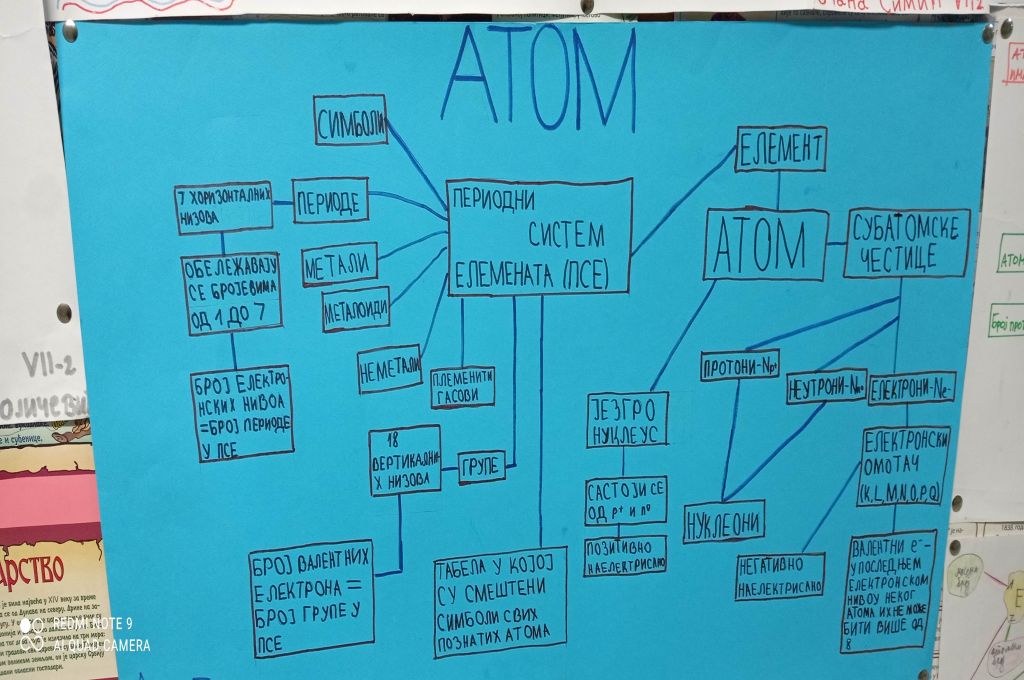 АТОМ
СИМБОЛИ
ЕЛЕМЕНТ
7 ХОРИЗОНТАЛНИХ
НИЗОВА
ПЕРИОДЕ
ПЕРИОДНИ
СИСТЕМ
ЕЛЕМЕНАТА (ПСЕ)
АТОМ
СУБАТОМСКЕ
ЧЕСТИЦЕ
ОБЕЛЕЖАВАЈУ
СЕ БРОЈЕВИМА
ОД 1 ДО 7
МЕТАЛИ
МЕТАЛОИДИ
БРОЈ ЕЛЕКТРО-
НСКИХ НИВОА
=БРОЈ ПЕРИОДЕ
У ПСЕ
НЕМЕТАЛИ
ПЛЕМЕНИТИ
ГАСОВИ
ПРОТОНИ-Np+
НЕУТРОНИ-Nn0
ЕЛЕКТРОНИ-Ne-
18
ВЕРТИКАЛНИ-
Х НИЗОВА
ГРУПЕ
ЈЕЗГРО
НУКЛЕУС
ЕЛЕКТРОНСКИ
ОМОТАЧ
(K,L,M,N,O,P,Q)
САСТОЈИ СЕ
ОД p+ И n0
НУКЛЕОНИ
ПОЗИТИВНО
НАЕЛЕКТРИСАНО
НЕГАТИВНО
НАЕЛЕКТРИСАНО
БРОЈ ВАЛЕНТНИХ
ЕЛЕКТРОНА =
БРОЈ ГРУПЕ У
ПСЕ
ТАБЕЛА У КОЈОЈ
СУ СМЕШТЕНИ
СИМБОЛИ СВИХ
ПОЗНАТИХ АТОМА
ВАЛЕНТНИ e--
У ПОСЛЕДЊЕМ
ЕЛЕКТРОНСКОМ
НИВОУ НЕКОГ
АТОМА ИХ НЕ МОЖЕ
БИТИ ВИШЕ ОД
8
VII-2
REDMI NOTE 9
AI QUAD CAMERA